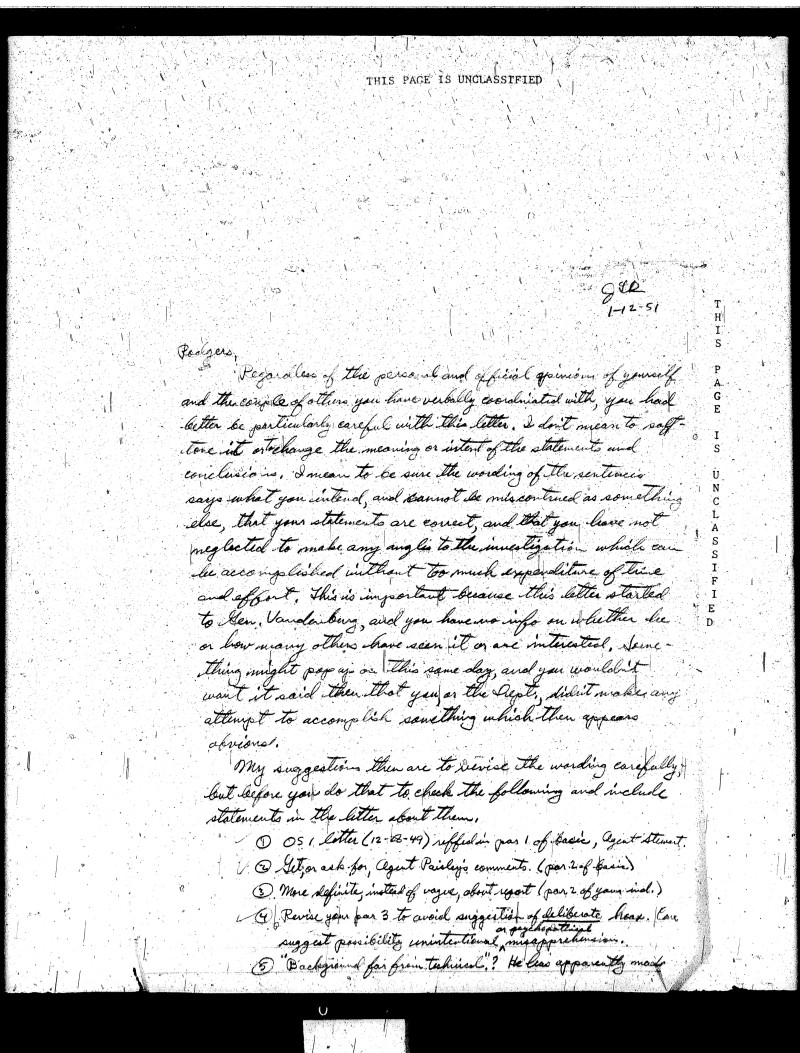 THIS PAGE IS UNCLASSIFIED
1-12-51
THIS PAGE IS UNCLASSIFIED
Rodgers,
Regardless of the personal and official opinions of yourself
and the couple of others you have verbally coordinated with, you had
better be particularly careful with this letter. I don't mean to soft-
tone it or to change the meaning or intent of the statements and
conclusions. I mean to be sure the wording of the sentences
says what you intend, and cannot be misconstrued as something
else, that your statements are correct, and that you have not
neglected to make any angles to the investigation which can
be accomplished without too much expenditure of time
and effort. This is important because this letter started
to Gen. Vandenberg, and you have no info on whether he
or how many others have seen it or are interested. Some-
thing might pop up on this same day, and you wouldn't
want it said then that you, or the Dept., didn't make any
attempt to accomplish something which then appears
obvious.
My suggestions then are to revise the wording carefully,
but before you do that to check the following and include
statements in the letter about them.
① OSI letter (12-49) reffed in par 1 of basic, Agent Stewart.
② Get, or ask for, Agent Paisley's comments. (par 2 of basic)
③ More definite, instead of vague, about report (par 2 of your ind.)
④ Revise your par 3 to avoid suggestion of deliberate hoax. Can
or psychopathical
suggest possibility unintentional misapprehension.
⑤ "Background far from technical"? He has apparently made